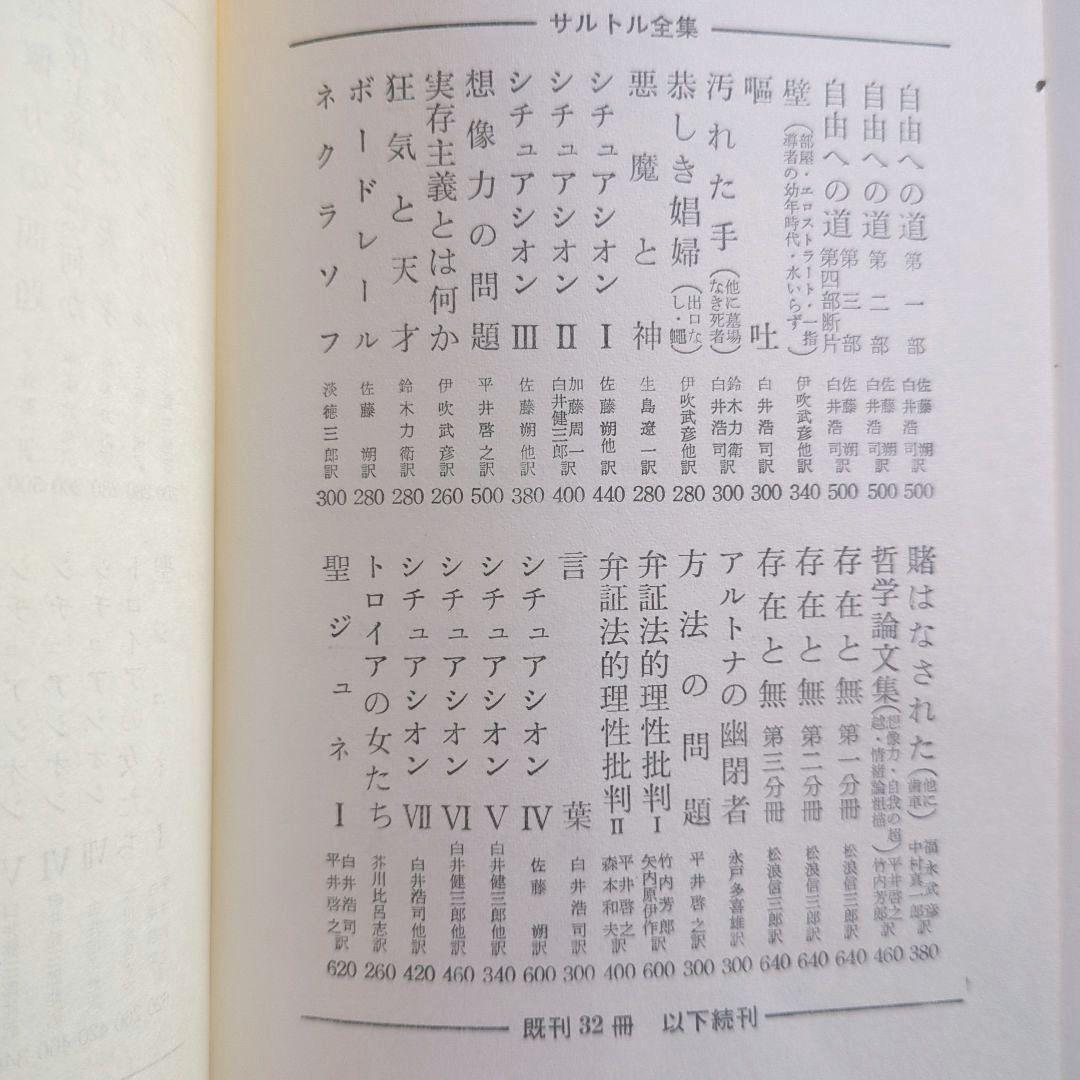 サルトル全集
自由への道 第一部 佐藤朔 白井浩司訳 500
自由への道 第二部 佐藤朔 白井浩司訳 500
自由への道 第三部 第四部断片 佐藤朔 白井浩司訳 500
壁(部屋・エロストラート・一指導者の幼年時代・水いらず) 伊吹武彦他訳 340
嘔吐 白井浩司訳 300
汚れた手(他に墓場なき死者) 鈴木力衛 白井浩司訳 300
恭しき娼婦(出口なし・蠅) 伊吹武彦他訳 280
悪魔と神 生島遼一訳 280
シチュアシオン Ⅰ 佐藤朔他訳 440
シチュアシオン Ⅱ 加藤周一 白井健三郎訳 400
シチュアシオン Ⅲ 佐藤朔他訳 380
想像力の問題 平井啓之訳 500
実存主義とは何か 伊吹武彦訳 260
狂気と天才 鈴木力衛訳 280
ボードレール 佐藤朔訳 280
ネクラソフ 淡徳三郎訳 300
賭はなされた(他に歯車) 福永武彦 中村真一郎訳 380
哲学論文集(想像力・自我の超越・情緒論粗描) 平井啓之 竹内芳郎訳 460
存在と無 第一分冊 松浪信三郎訳 640
存在と無 第二分冊 松浪信三郎訳 640
存在と無 第三分冊 松浪信三郎訳 640
アルトナの幽閉者 永戸多喜雄訳 300
方法の問題 平井啓之訳 300
弁証法的理性批判Ⅰ 竹内芳郎 矢内原伊作訳 600
弁証法的理性批判Ⅱ 平井啓之 森本和夫訳 400
言葉 白井浩司訳 300
シチュアシオン Ⅳ 佐藤朔訳 600
シチュアシオン Ⅴ 白井健三郎他訳 340
シチュアシオン Ⅵ 白井健三郎他訳 460
シチュアシオン Ⅶ 白井浩司他訳 420
トロイアの女たち 芥川比呂志訳 260
聖ジュネ Ⅰ 白井浩司 平井啓之訳 620
既刊32冊 以下続刊